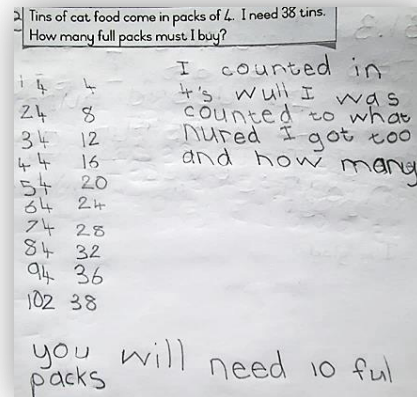 2 Tins of cat food come in packs of 4. I need 38 tins.
How many full packs must I buy?
1 4 4
24 8
34 12
44 16
54 20
64 24
74 28
84 32
94 36
102 38
I counted in
4's wull I was
counted to what
nured I got too
and how many
you will need 10 ful
packs